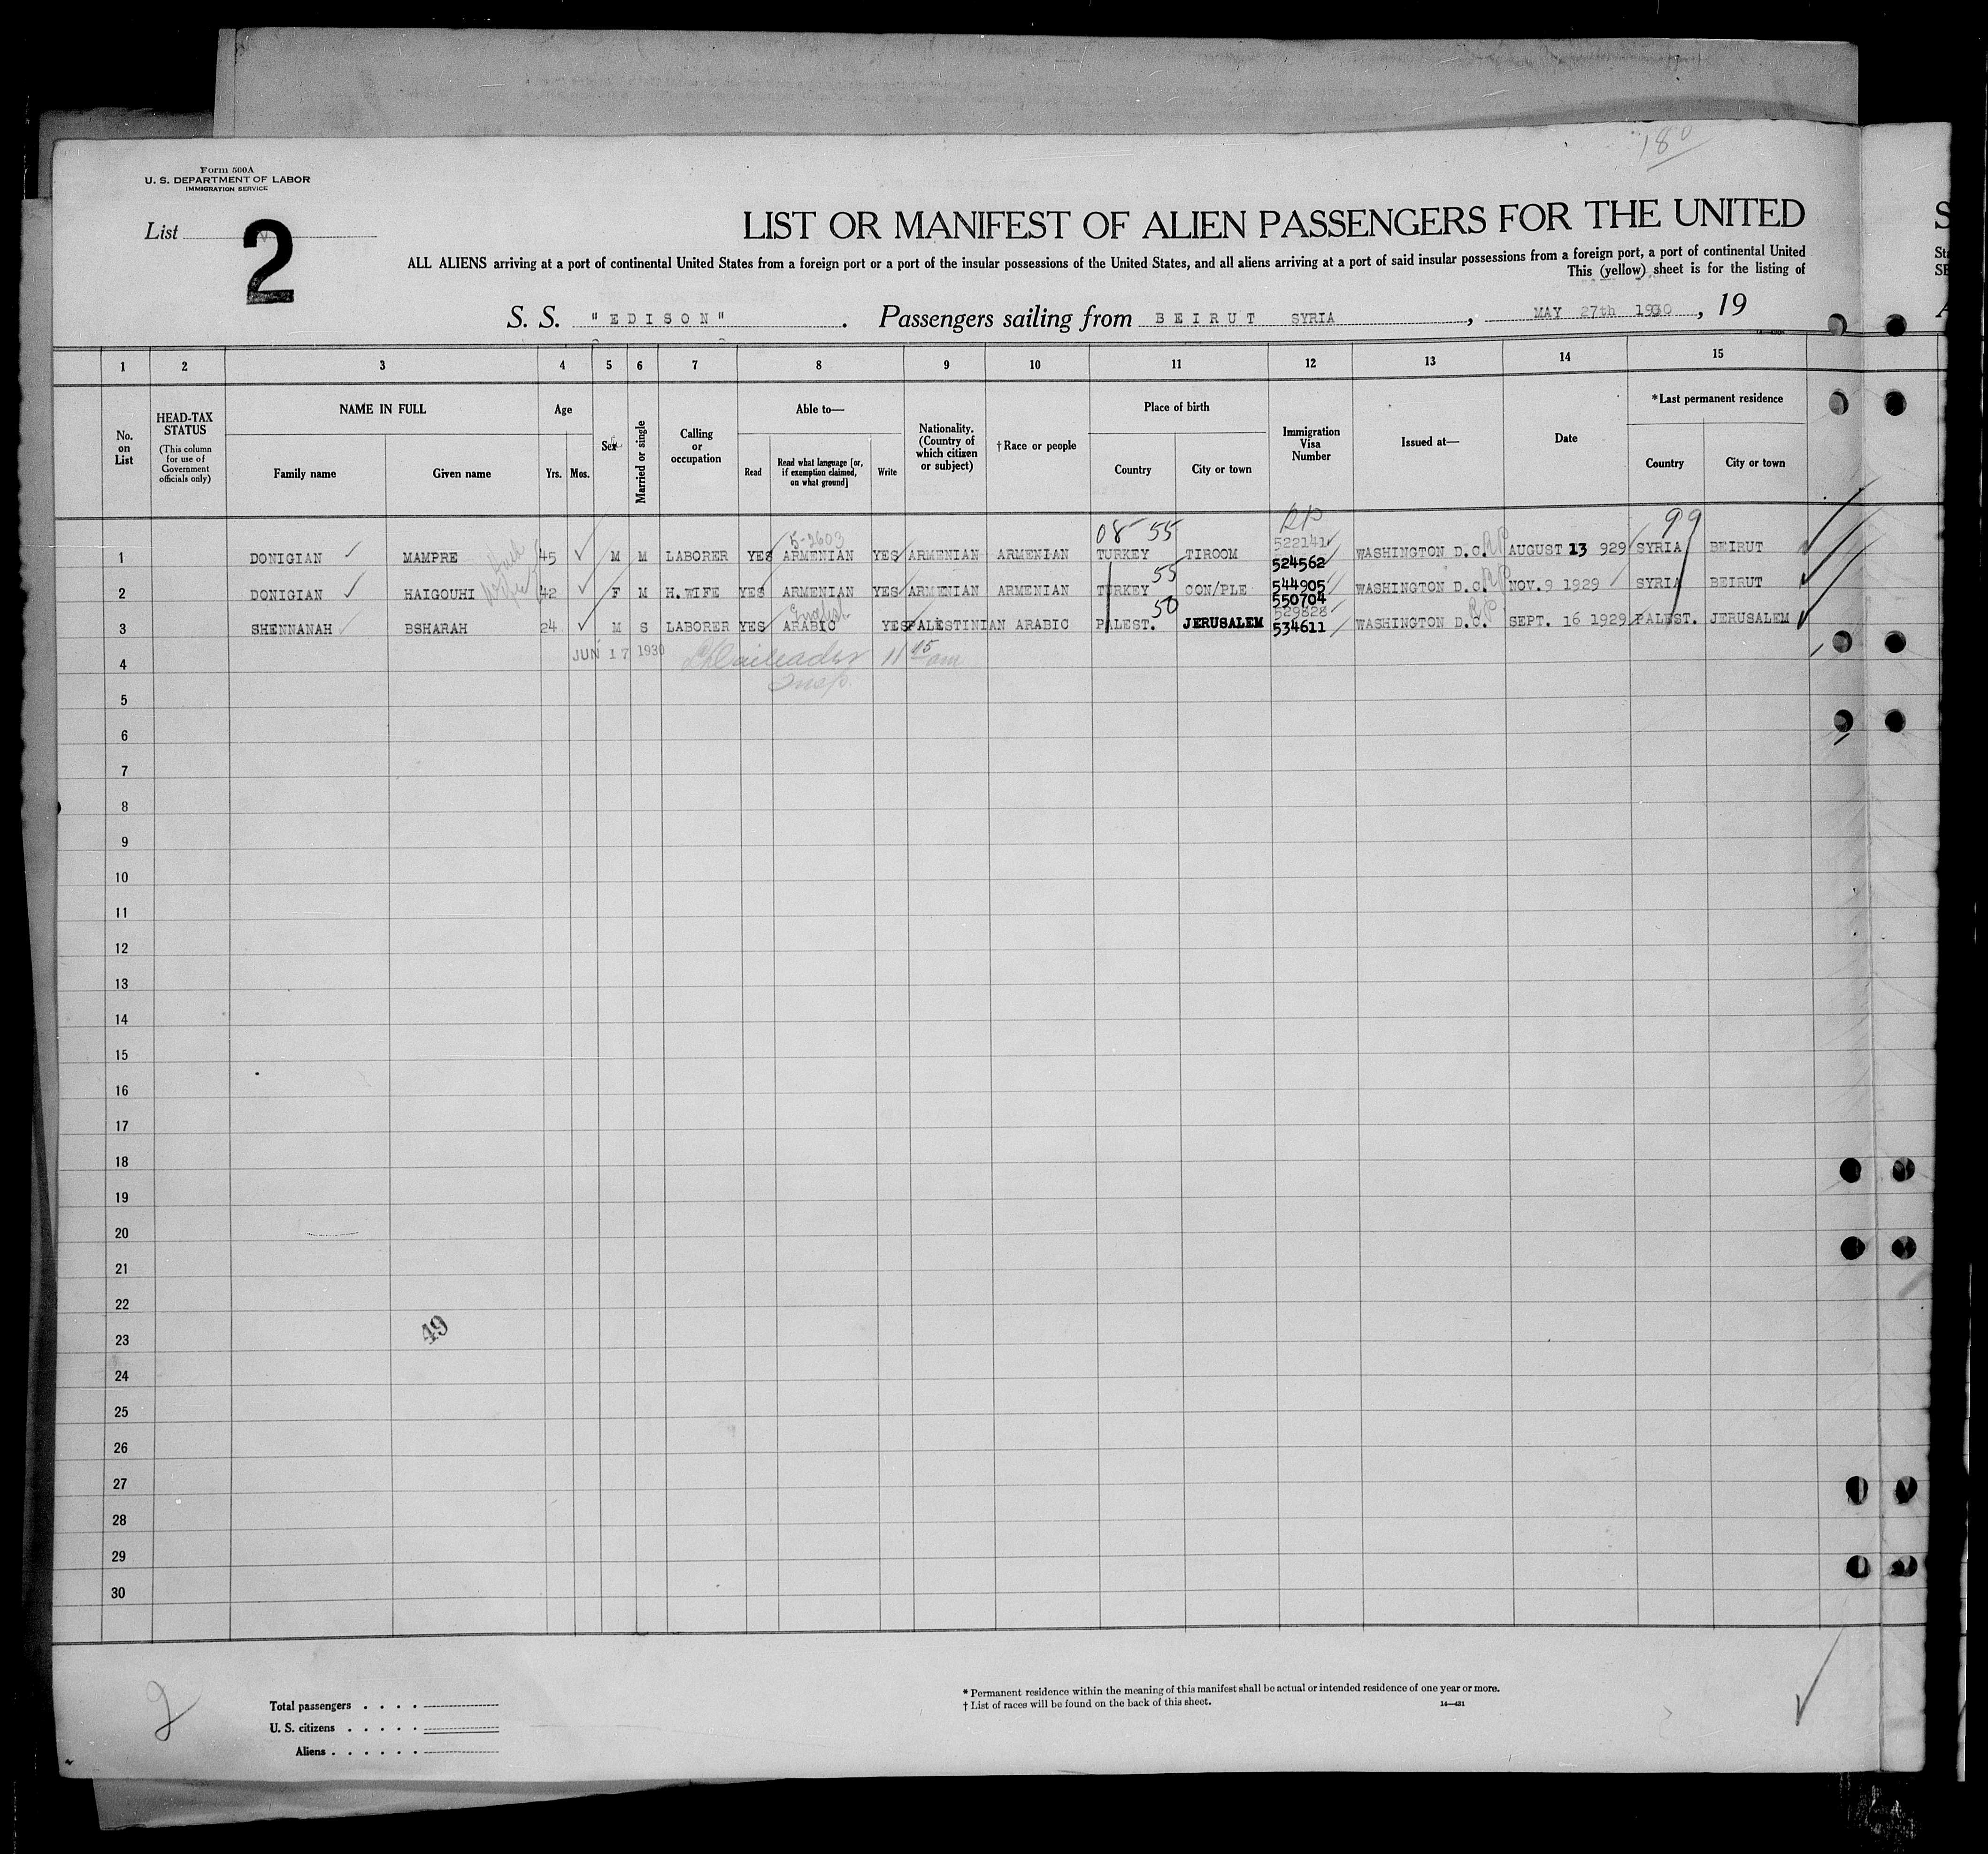 180
Form 500A
U. S. DEPARTMENT OF LABOR
IMMIGRATION SERVICE
List
2
LIST OR MANIFEST OF ALIEN PASSENGERS FOR THE UNITED
ALL ALIENS arriving at a port of continental United States from a foreign port or a port of the insular possessions of the United States, and all aliens arriving at a port of said insular possessions from a foreign port, a port of continental United
This (yellow) sheet is for the listing of
S. S. "EDISON". Passengers sailing from BEIRUT SYRIA, MAY 27th 1930, 19
1 2 3 4 5 6 7 8 9 10 11 12 13 14 15
No. on List
HEAD-TAX STATUS (This column for use of Government officials only)
NAME IN FULL Family name Given name
Age Yrs. Mos.
Sex
Married or single
Calling or occupation
Able to— Read Read what language [or, if exemption claimed, on what ground] Write
Nationality. (Country of which citizen or subject)
†Race or people
Place of birth Country City or town
Immigration Visa Number
Issued at—
Date
*Last permanent residence Country City or town
08 55 RP 99
5-2603 522141
1 DONIGIAN MAMPRE 45 M M LABORER YES ARMENIAN YES ARMENIAN ARMENIAN TURKEY TIROOM 524562 WASHINGTON D.C. RP AUGUST 13 929 SYRIA BEIRUT
55
2 DONIGIAN HAIGOUHI Wife 42 F M H.WIFE YES ARMENIAN YES ARMENIAN ARMENIAN TURKEY CON/PLE 544905 WASHINGTON D.C. RP NOV.9 1929 SYRIA BEIRUT
550704
English 50 529828
3 SHENNANAH BSHARAH 24 M S LABORER YES ARABIC YES PALESTINIAN ARABIC PALEST. JERUSALEM 534611 WASHINGTON D.C. RP SEPT. 16 1929 PALEST. JERUSALEM
4 JUN 17 1930 11 15 am
Insp.
5
6
7
8
9
10
11
12
13
14
15
16
17
18
19
20
21
22
23 49
24
25
26
27
28
29
30
2
Total passengers . . . .
U. S. citizens . . . . .
Aliens . . . . . .
* Permanent residence within the meaning of this manifest shall be actual or intended residence of one year or more.
† List of races will be found on the back of this sheet.
14—431